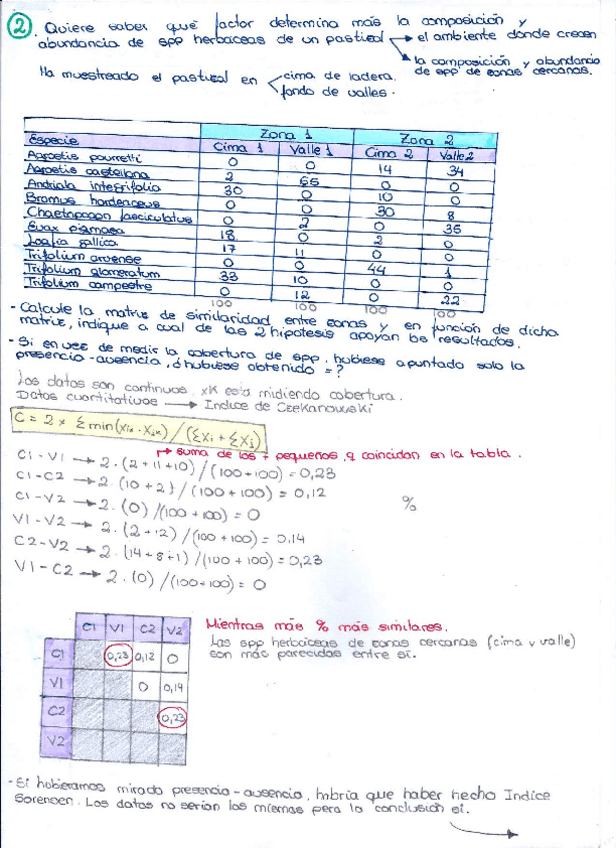 ② . Quiere saber qué factor determina más la composición y
abundancia de spp herbáceas de un pastizal → el ambiente donde crecen
→ la composición y abundancia
de spp de zonas cercanas.
Ha muestreado el pastizal en < cima de ladera.
fondo de valles.
Especie Zona 1 Zona 2
Cima 1 Valle 1 Cima 2 Valle 2
Agrostis pourretti 0 0 14 34
Agrostis castellana 2 65 0 0
Andriala integrifolia 30 0 10 0
Bromus hordeaceus 0 0 30 8
Chaetopogon fasciculatus 0 2 0 35
Evax pigmaea 18 0 2 0
Logfia gallica 17 11 0 0
Trifolium arvense 0 0 44 1
Trifolium glomeratum 33 10 0 0
Trifolium campestre 0 12 0 22
100 100 100 100
- Calcule la matriz de similaridad entre zonas y en función de dicha
matriz, indique a cual de las 2 hipotesis apoyan los resultados.
- Si en vez de medir la cobertura de spp. hubiese apuntado solo la
presencia-ausencia, ¿hubiese obtenido = ?
Los datos son continuos xK está midiendo cobertura.
Datos cuantitativos → Indice de Czekanowski
C = 2 × Σ min(xik - xjk) / (Σxi + Σxj)
↳ suma de los + pequeños q coincidan en la tabla.
C1-V1 → 2·(2+11+10)/(100+100) = 0,23
C1-C2 → 2·(10+2)/(100+100) = 0,12
C1-V2 → 2·(0)/(100+100) = 0
%
V1-V2 → 2·(2+12)/(100+100) = 0,14
C2-V2 → 2·(14+8+1)/(100+100) = 0,23
V1-C2 → 2·(0)/(100+100) = 0
C1 V1 C2 V2
C1 0,23 0,12 0
V1 0 0,14
C2 0,23
V2
Mientras más % más similares.
Las spp herbáceas de zonas cercanas (cima y valle)
son más parecidas entre sí.
- Si hubieramos mirado presencia-ausencia, habria que haber hecho Indice
Sorensen. Los datos no serían los mismos pero la conclusión sí.